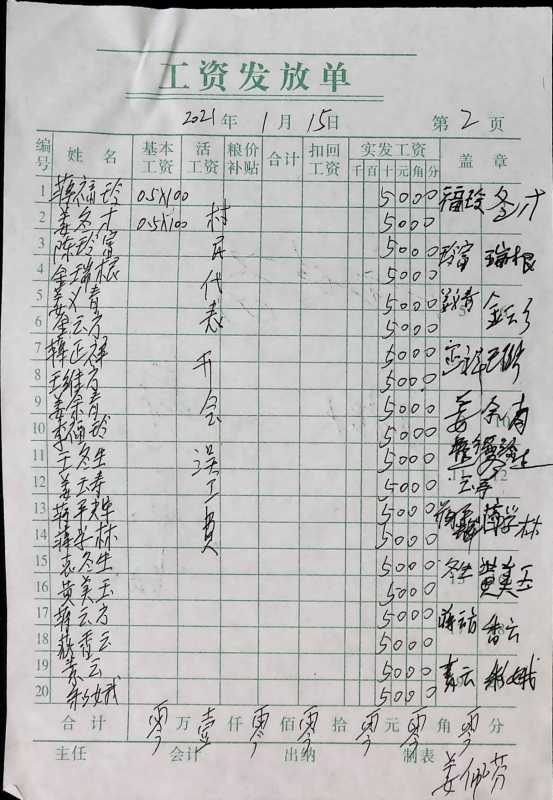 工资发放单
2021年 1月 15日 第 2 页
编号 姓名 基本工资 活工资 粮价补贴 合计 扣回工资 实发工资 千百十元角分 盖章
1 蒋福玲 0.5×100 5000 福玲
2 姜冬才 0.5×100 5000 冬才
3 陈玲富 5000 玲富
4 金瑞根 5000 瑞根
5 姜义青 5000
6 金云方 5000
7 蒋正祥 5000
8 5000
9 姜余青 5000
10 5000
11 王冬生 5000
12 姜云寿 5000 云寿
13 5000
14 蒋学林 5000 蒋学林
15 袁冬生 5000 冬生
16 黄美玉 5000 黄美玉
17 蒋云方 5000
18 香云 5000 香云
19 素云 5000 素云
20 娥 5000 娥
村民代表开会误工费
合计 零万壹仟零佰零拾零元零角零分
主任 会计 出纳 制表
姜佩芬